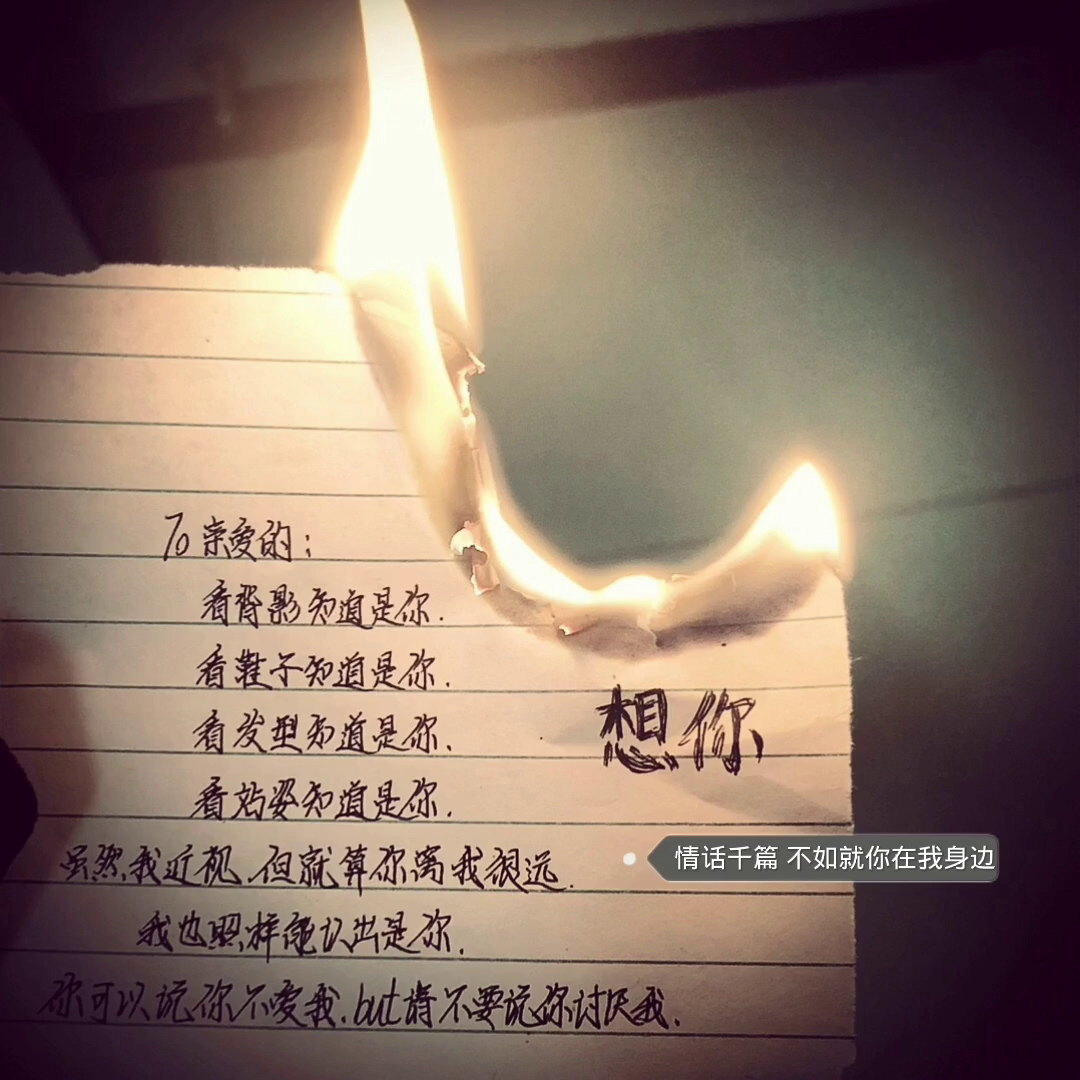 To 亲爱的:
看背影知道是你.
看鞋子知道是你.
看发型知道是你.
看站姿知道是你.
想你
虽然我近视.但就算你离我很远.
情话千篇 不如就你在我身边
我也照样能认出是你.
你可以说你不爱我.but请不要说你讨厌我.